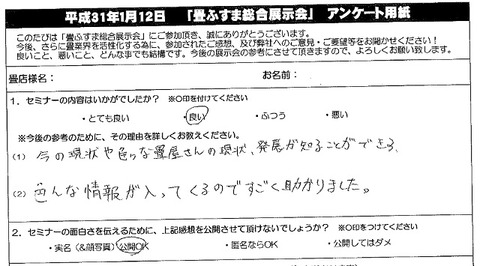 平成31年1月12日 「畳ふすま総合展示会」 アンケート用紙
このたびは「畳ふすま総合展示会」にご参加頂き、誠にありがとうございます。
今後、さらに畳業界を活性化する為に、参加されたご感想、及び弊社へのご意見・ご要望等をお聞かせください！
良いこと、悪いこと、どんなまでも結構です。今後の展示会の参考にさせて頂きますので、よろしくお願い致します。
畳店様名： お名前：
1．セミナーの内容はいかがでしたか？ ※○印を付けてください
・とても良い ・良い ・ふつう ・悪い
※今後の参考のために、その理由を詳しくお教えください。
(1) 今の現状や色々な畳屋さんの現状、発展が知ることができる、
(2) 色んな情報が入ってくるのですごく助かりました。
2．セミナーの面白さを伝えるために、上記感想を公開させて頂けないでしょうか？ ※○印をつけてください
・実名（&顔写真）公開OK ・匿名ならOK ・公開してはダメ